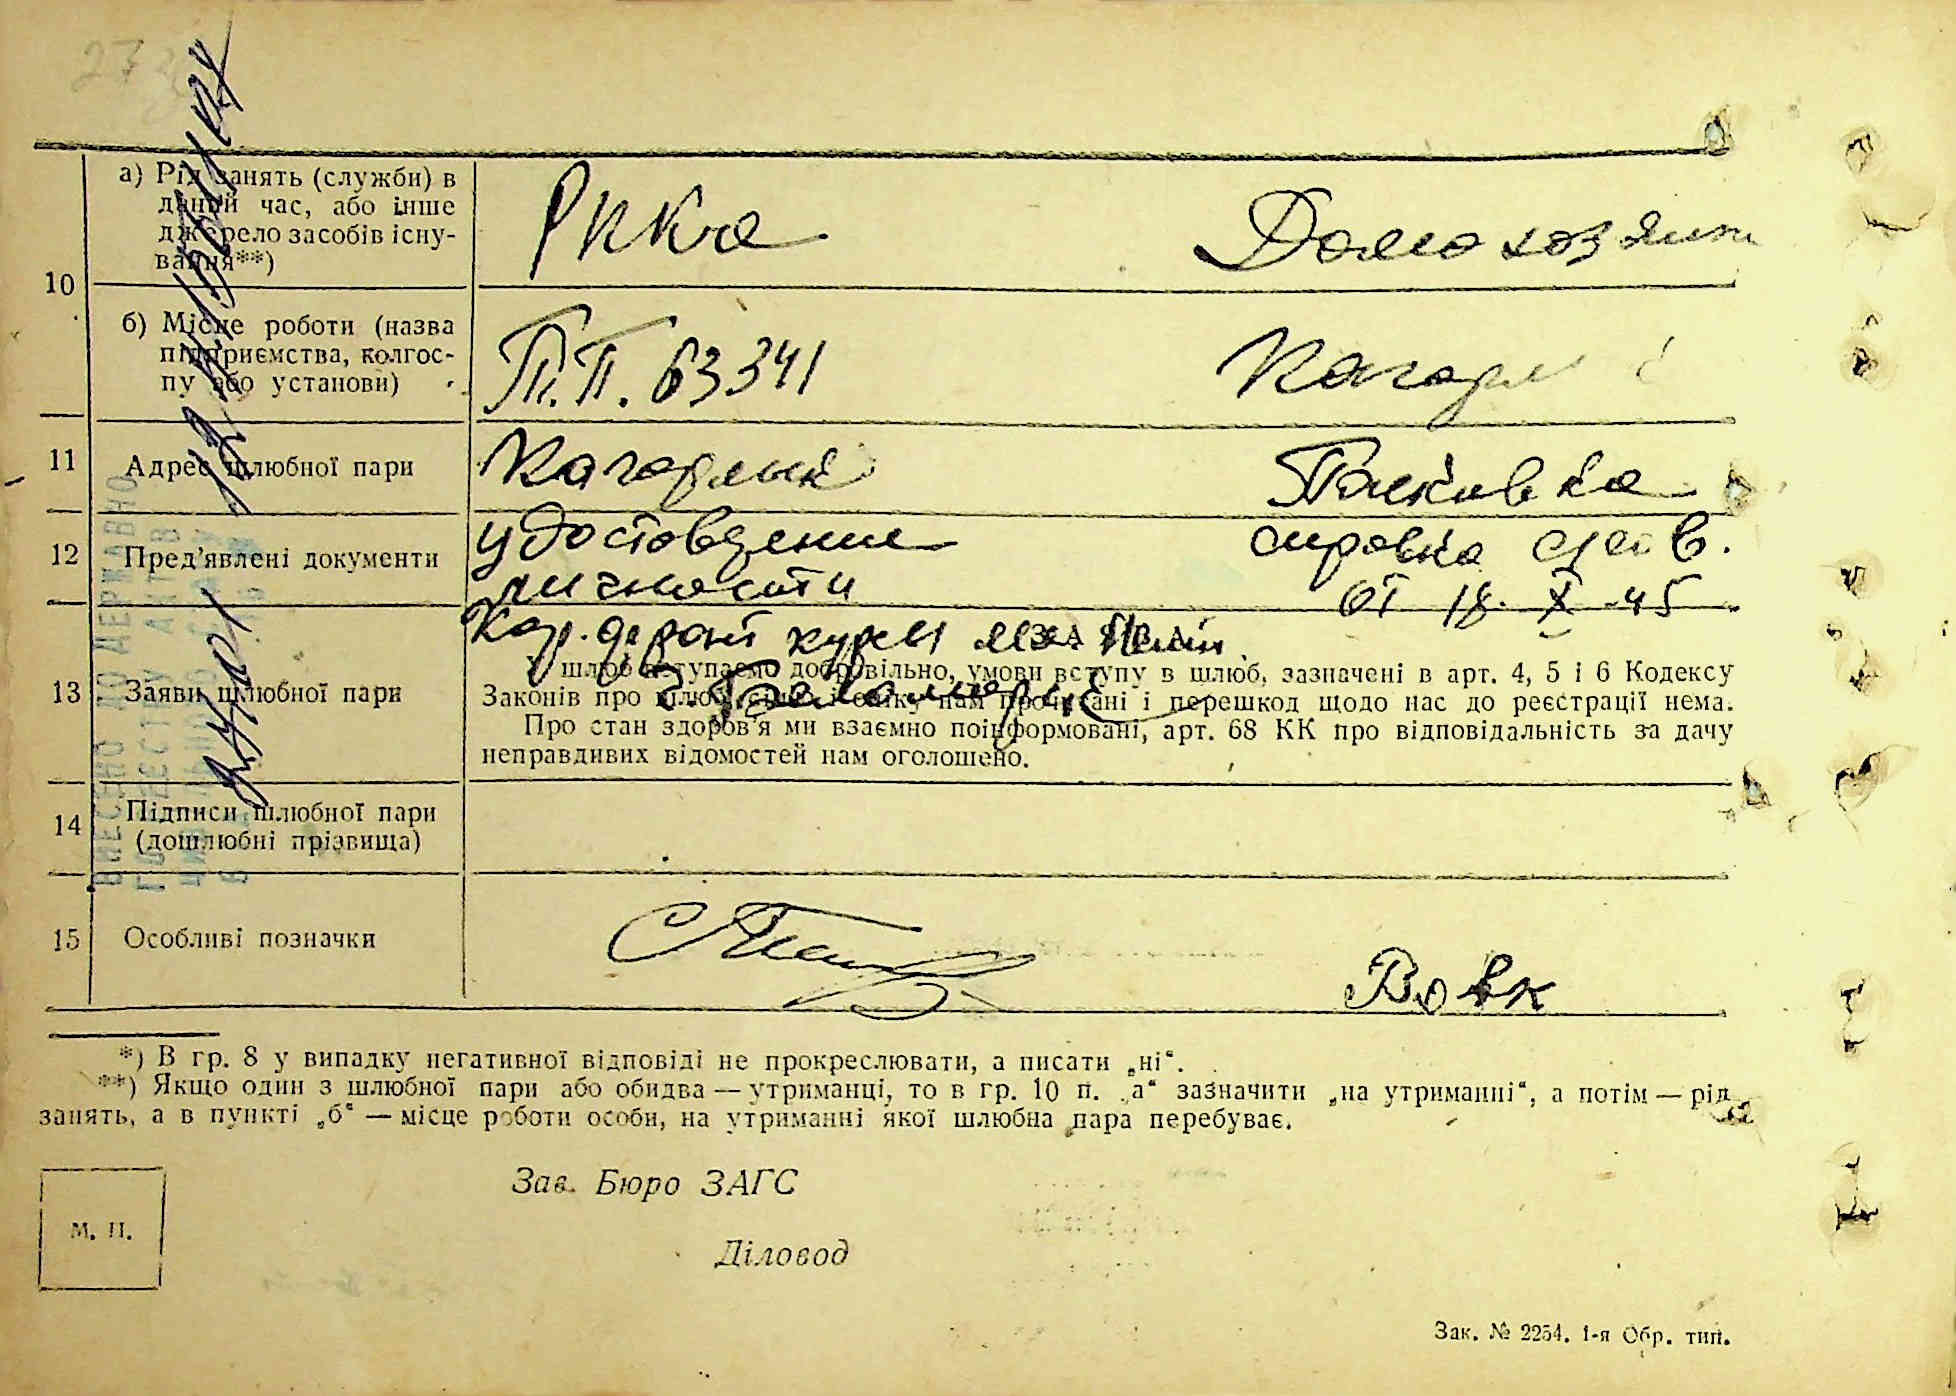 10
а) Рід занять (служби) в
даний час, або інше
джерело засобів існу-
вання**)
РККА
Домохозяйк
б) Місце роботи (назва
підприємства, колгос-
пу або установи)
П.П. 63341
Кагарл
11
Адрес шлюбної пари
Кагарлык
12
Пред’явлені документи
удостоверение
личности
справка
от 18. X 45
13
Заяви шлюбної пари
ЗАЯВА
У шлюб вступаємо добровільно, умови вступу в шлюб, зазначені в арт. 4, 5 і 6 Кодексу
Законів про шлюб, сім’ю і опіку нам прочитані і перешкод щодо нас до реєстрації нема.
Про стан здоров’я ми взаємно поінформовані, арт. 68 КК про відповідальність за дачу
неправдивих відомостей нам оголошено.
14
Підписи шлюбної пари
(дошлюбні прізвища)
15
Особливі позначки
Вовк
*) В гр. 8 у випадку негативної відповіді не прокреслювати, а писати „ні“.
**) Якщо один з шлюбної пари або обидва — утриманці, то в гр. 10 п. „а“ зазначити „на утриманні“, а потім — рід
занять, а в пункті „б“ — місце роботи особи, на утриманні якої шлюбна пара перебуває.
Зав. Бюро ЗАГС
М. П.
Діловод
Зак. № 2254. 1-я Обр. тип.